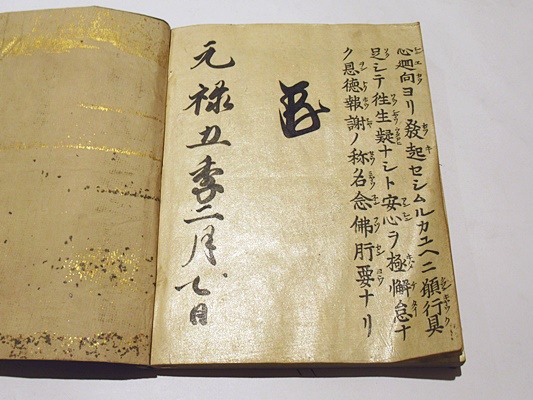 心廻向ヨリ發起セシムルカユヘニ願行具
足シテ往生疑ナシト安心ヲ極懈怠ナ
ク恩徳報謝ノ称名念佛肝要ナリ
元禄五季二月七日